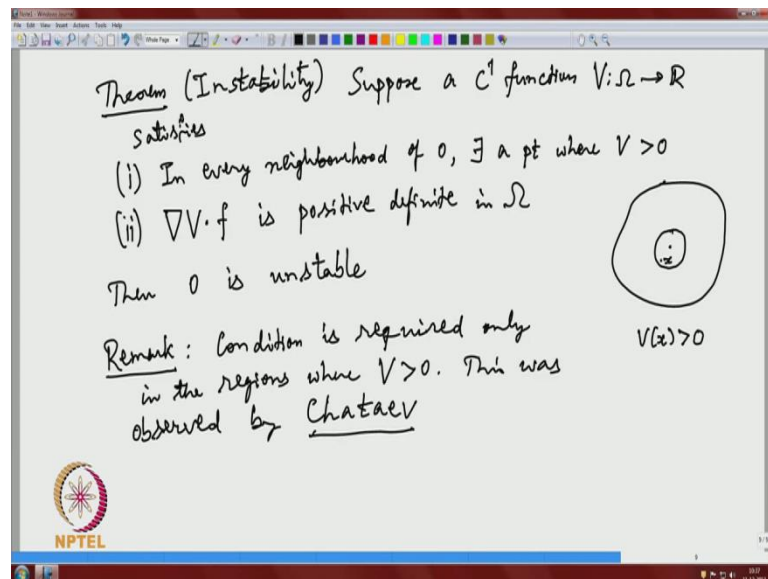 Note1 - Windows Journal
File Edit View Insert Actions Tools Help
Whole Page
Theorem (Instability) Suppose a C¹ function V: Ω → ℝ
satisfies
(i) In every neighbourhood of 0, ∃ a pt where V > 0
(ii) ∇V·f is positive definite in Ω
Then 0 is unstable
x
V(x) > 0
Remark: Condition is required only
in the regions where V > 0. This was
observed by Chataev
NPTEL